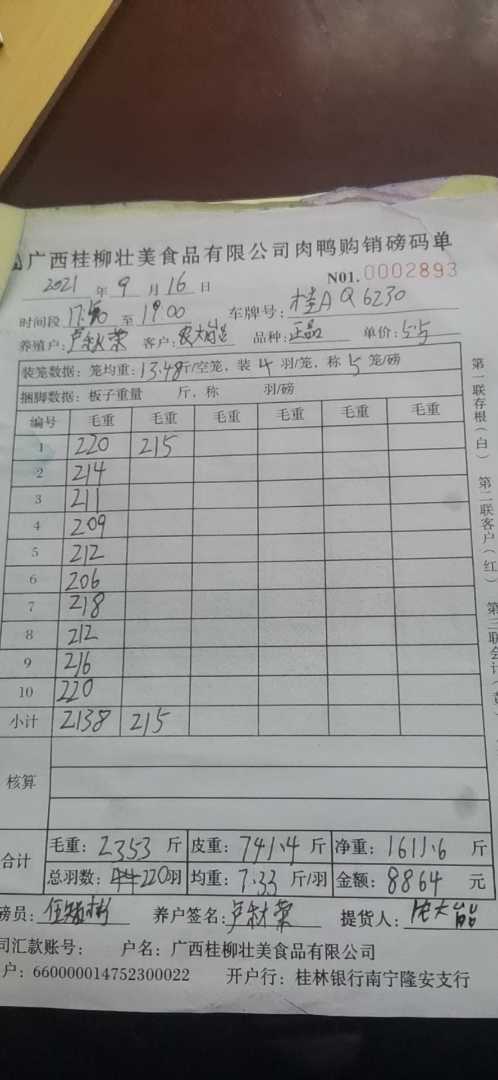 广西桂柳壮美食品有限公司肉鸭购销磅码单
2021 年 9 月 16 日 N01.0002893
时间段 17:50 至 19:00 车牌号: 桂A Q6230
养殖户: 卢秋荣 客户: 品种: 正品 单价: 5.5
装笼数据: 笼均重: 13.48斤/空笼, 装 4 羽/笼, 称 5 笼/磅
捆脚数据: 板子重量 斤, 称 羽/磅
编号 毛重 毛重 毛重 毛重 毛重 毛重
1 220 215
2 214
3 211
4 209
5 212
6 206
7 218
8 212
9 216
10 220
小计 2138 215
核算
合计 毛重: 2353 斤 皮重: 741.4 斤 净重: 1611.6 斤
总羽数: 220羽 均重: 7.33 斤/羽 金额: 8864 元
磅员: 养户签名: 提货人:
司汇款账号: 户名: 广西桂柳壮美食品有限公司
户: 660000014752300022 开户行: 桂林银行南宁隆安支行
第一联存根(白) 第二联客户(红) 第三联会计(黄)